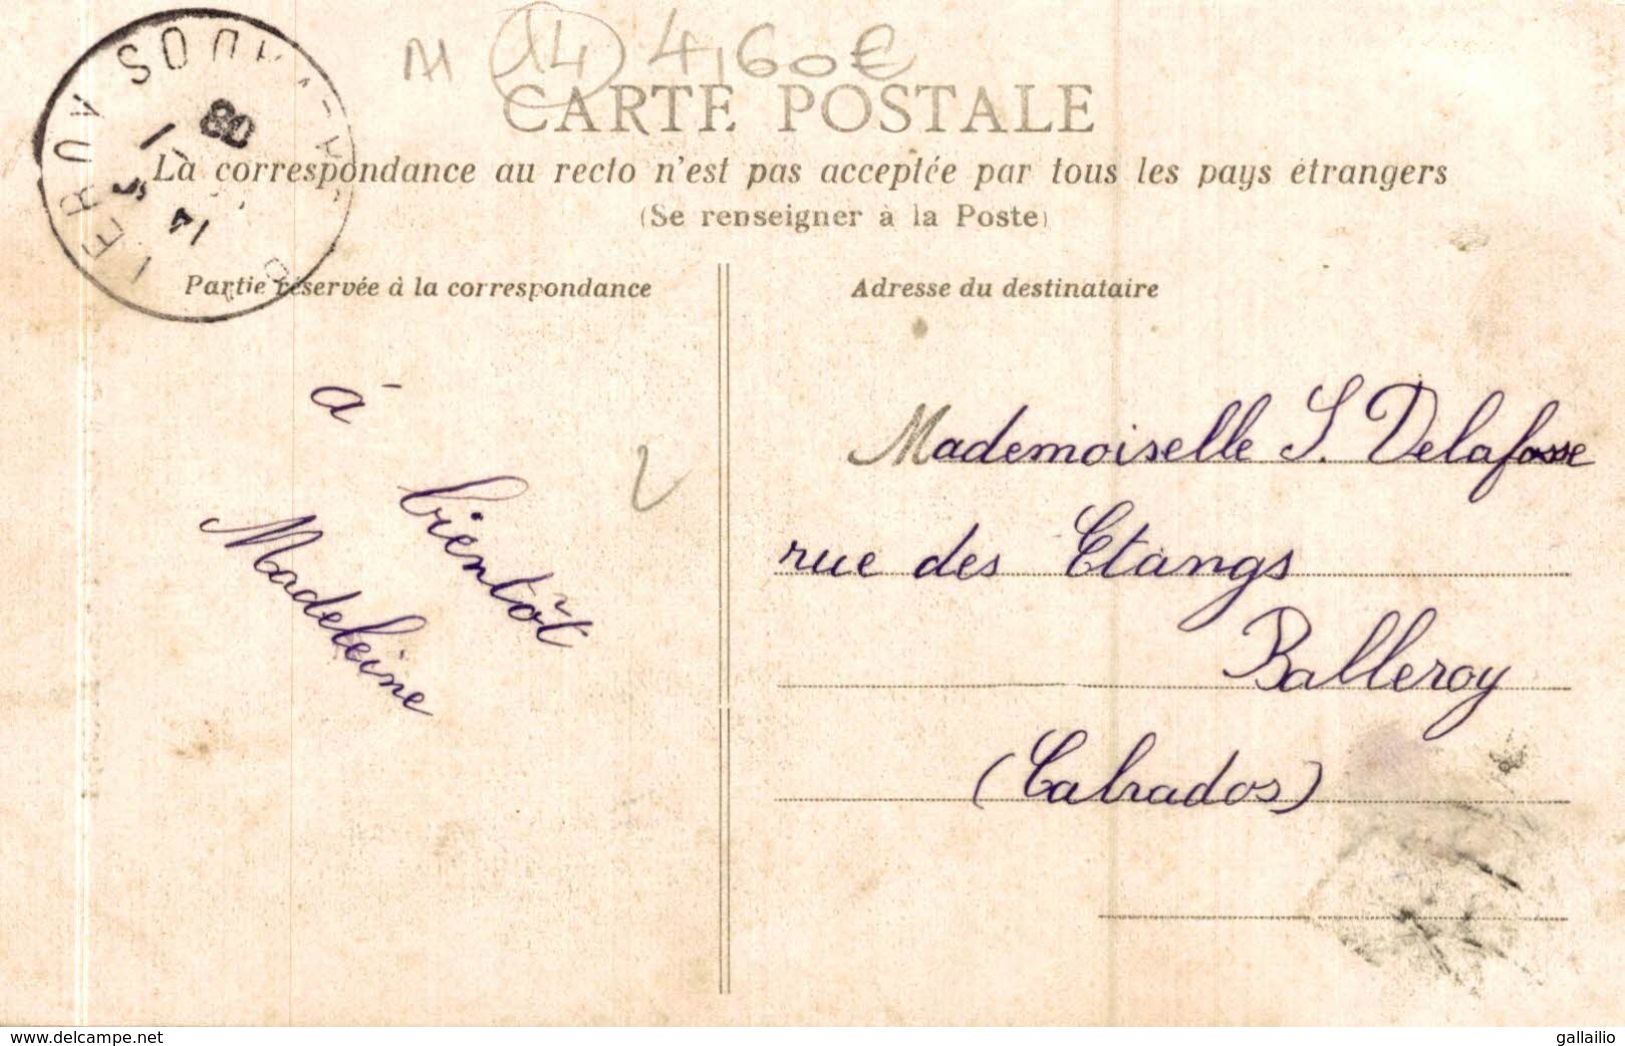 14 4,60€
CARTE POSTALE
La correspondance au recto n'est pas acceptée par tous les pays étrangers
(Se renseigner à la Poste)
Partie réservée à la correspondance
Adresse du destinataire
14
08
à
bientôt
Madeleine
2
Mademoiselle S. Delafosse
rue des Etangs
Balleroy
(Calvados)
www.delcampe.net
gallailio